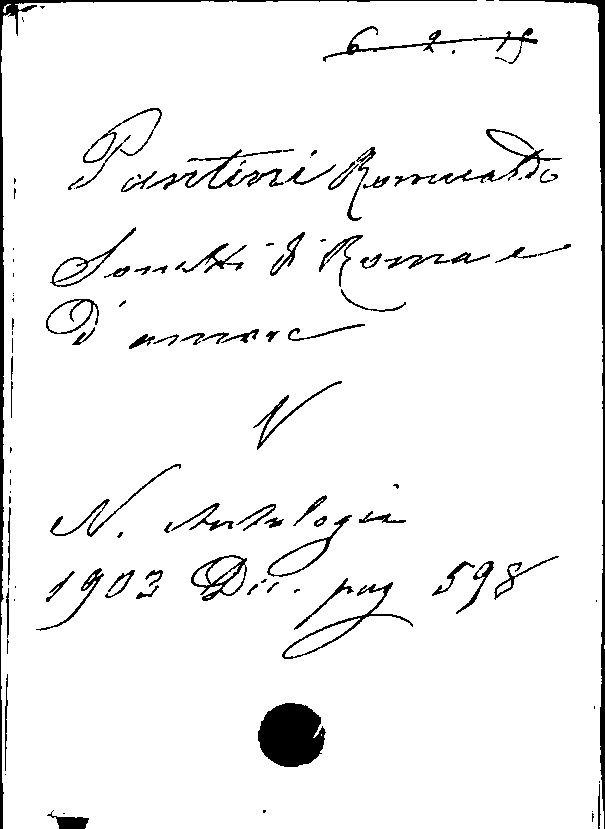 6 2. 15
Pantini Romualdo
Sonetti di Roma e
D'amore
V
N. Antologia
1903 Dic. pag 598